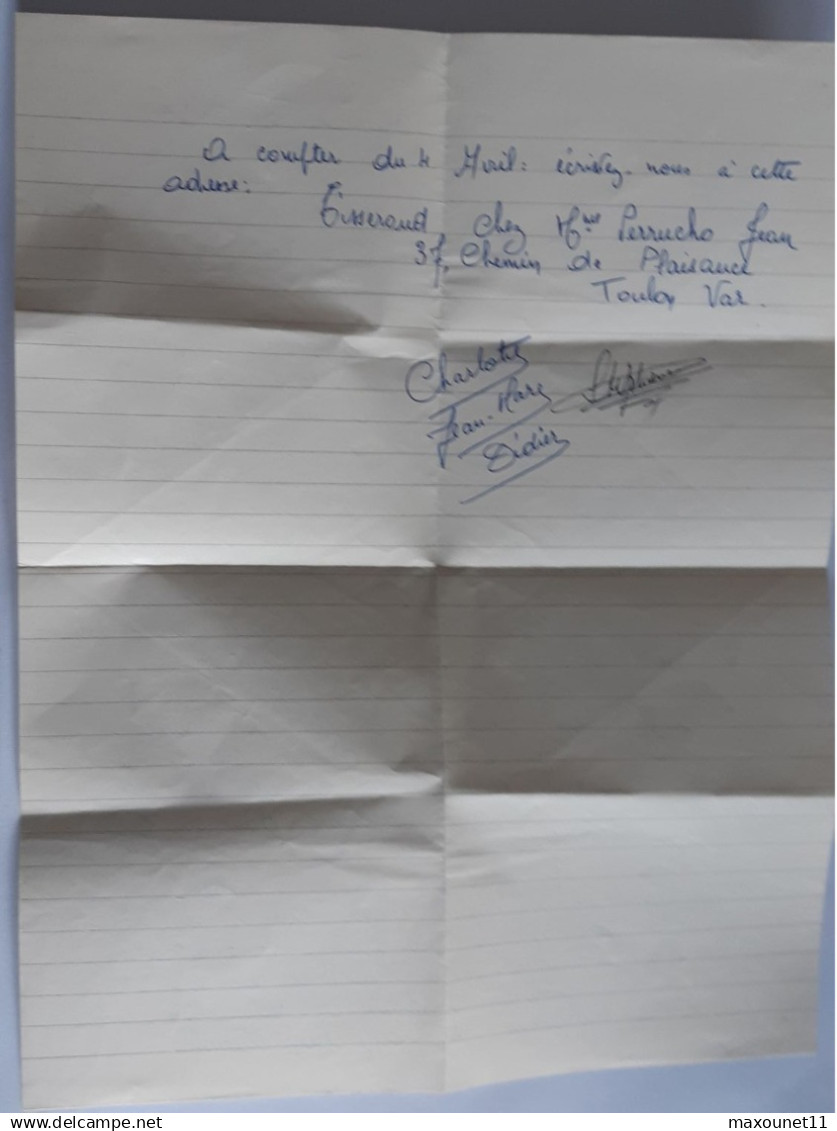 A compter du 4 Avril: écrivez-nous à cette
adresse:
Tisserand, chez Mme Perrucho Jean
37, Chemin de Plaisance
Toulon Var.
Charlotte
Jean-Marc
Stéphane
Didier
maxounet11